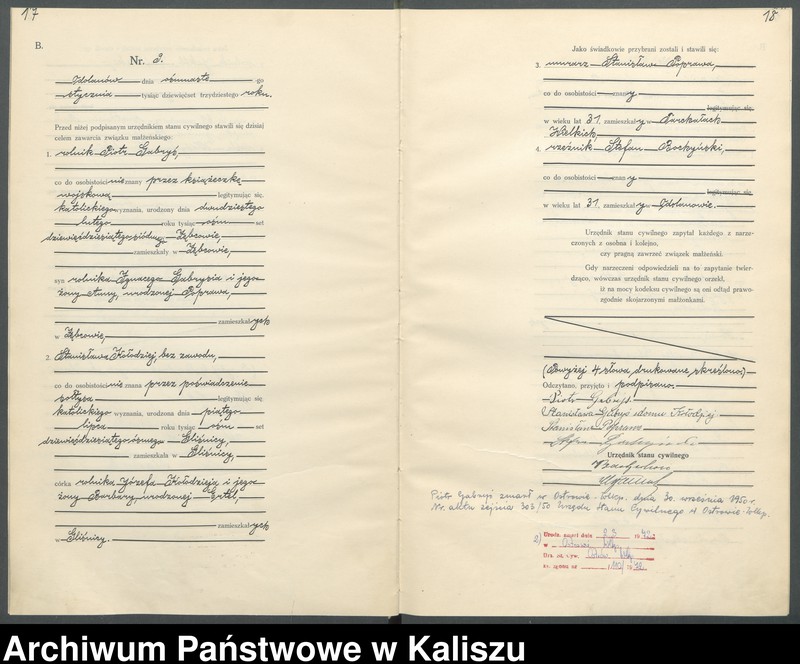 17
B.
Nr. 3.
Odolanów dnia ośmnasto go
stycznia tysiąc dziewięćset trzydziestego roku.
Przed niżej podpisanym urzędnikiem stanu cywilnego stawili się dzisiaj
celem zawarcia związku małżeńskiego:
1. rolnik Piotr Gabryś,
co do osobistości nie znany przez książeczkę
wojskową legitymując się,
katolickiego wyznania, urodzony dnia dwudziestego
lutego roku tysiąc ośm set
dziewięćdziesiątego siódmego Łąkocinie,
zamieszkały w
syn rolnika Ignacego Gabrysia i jego
żony Anny, urodzonej Poprawa,
zamieszkał ych
w
2. Stanisława Kołodziej, bez zawodu,
co do osobistości nie znana przez poświadczenie
sołtysa legitymując się,
katolickiego wyznania, urodzona dnia piątego
lipca roku tysiąc ośm set
dziewięćdziesiątego ósmego Gliśnicy,
zamieszkała w Gliśnicy,
córka rolnika Józefa Kołodzieja i jego
żony Barbary, urodzonej
zamieszkał ych
w Gliśnicy.
18
Jako świadkowie przybrani zostali i stawili się:
3. murarz Stanisław Poprawa,
co do osobistości znany
legitymując się,
w wieku lat 31, zamieszkały w Tarchałach
Wielkich,
4. rzeźnik Stefan
co do osobistości znany
legitymując się,
w wieku lat 31, zamieszkały w Odolanowie.
Urzędnik stanu cywilnego zapytał każdego z narze-
czonych z osobna i kolejno,
czy pragną zawrzeć związek małżeński.
Gdy narzeczeni odpowiedzieli na to zapytanie twier-
dząco, wówczas urzędnik stanu cywilnego orzekł,
iż na mocy kodeksu cywilnego są oni odtąd prawo-
zgodnie skojarzonymi małżonkami.
(Powyżej 4 słowa drukowane skreślono.)
Odczytano, przyjęto i podpisano.
Piotr Gabryś.
Stanisława Gabryś zdomu Kołodziej
Stanisław Poprawa
Urzędnik stanu cywilnego
Piotr Gabryś zmarł w Ostrowie-Wlkp. dnia 30. września 1950 r.
Nr. aktu zejścia 303/50 Urzędu Stanu Cywilnego w Ostrowie-Wlkp.
2)
Archiwum Państwowe w Kaliszu